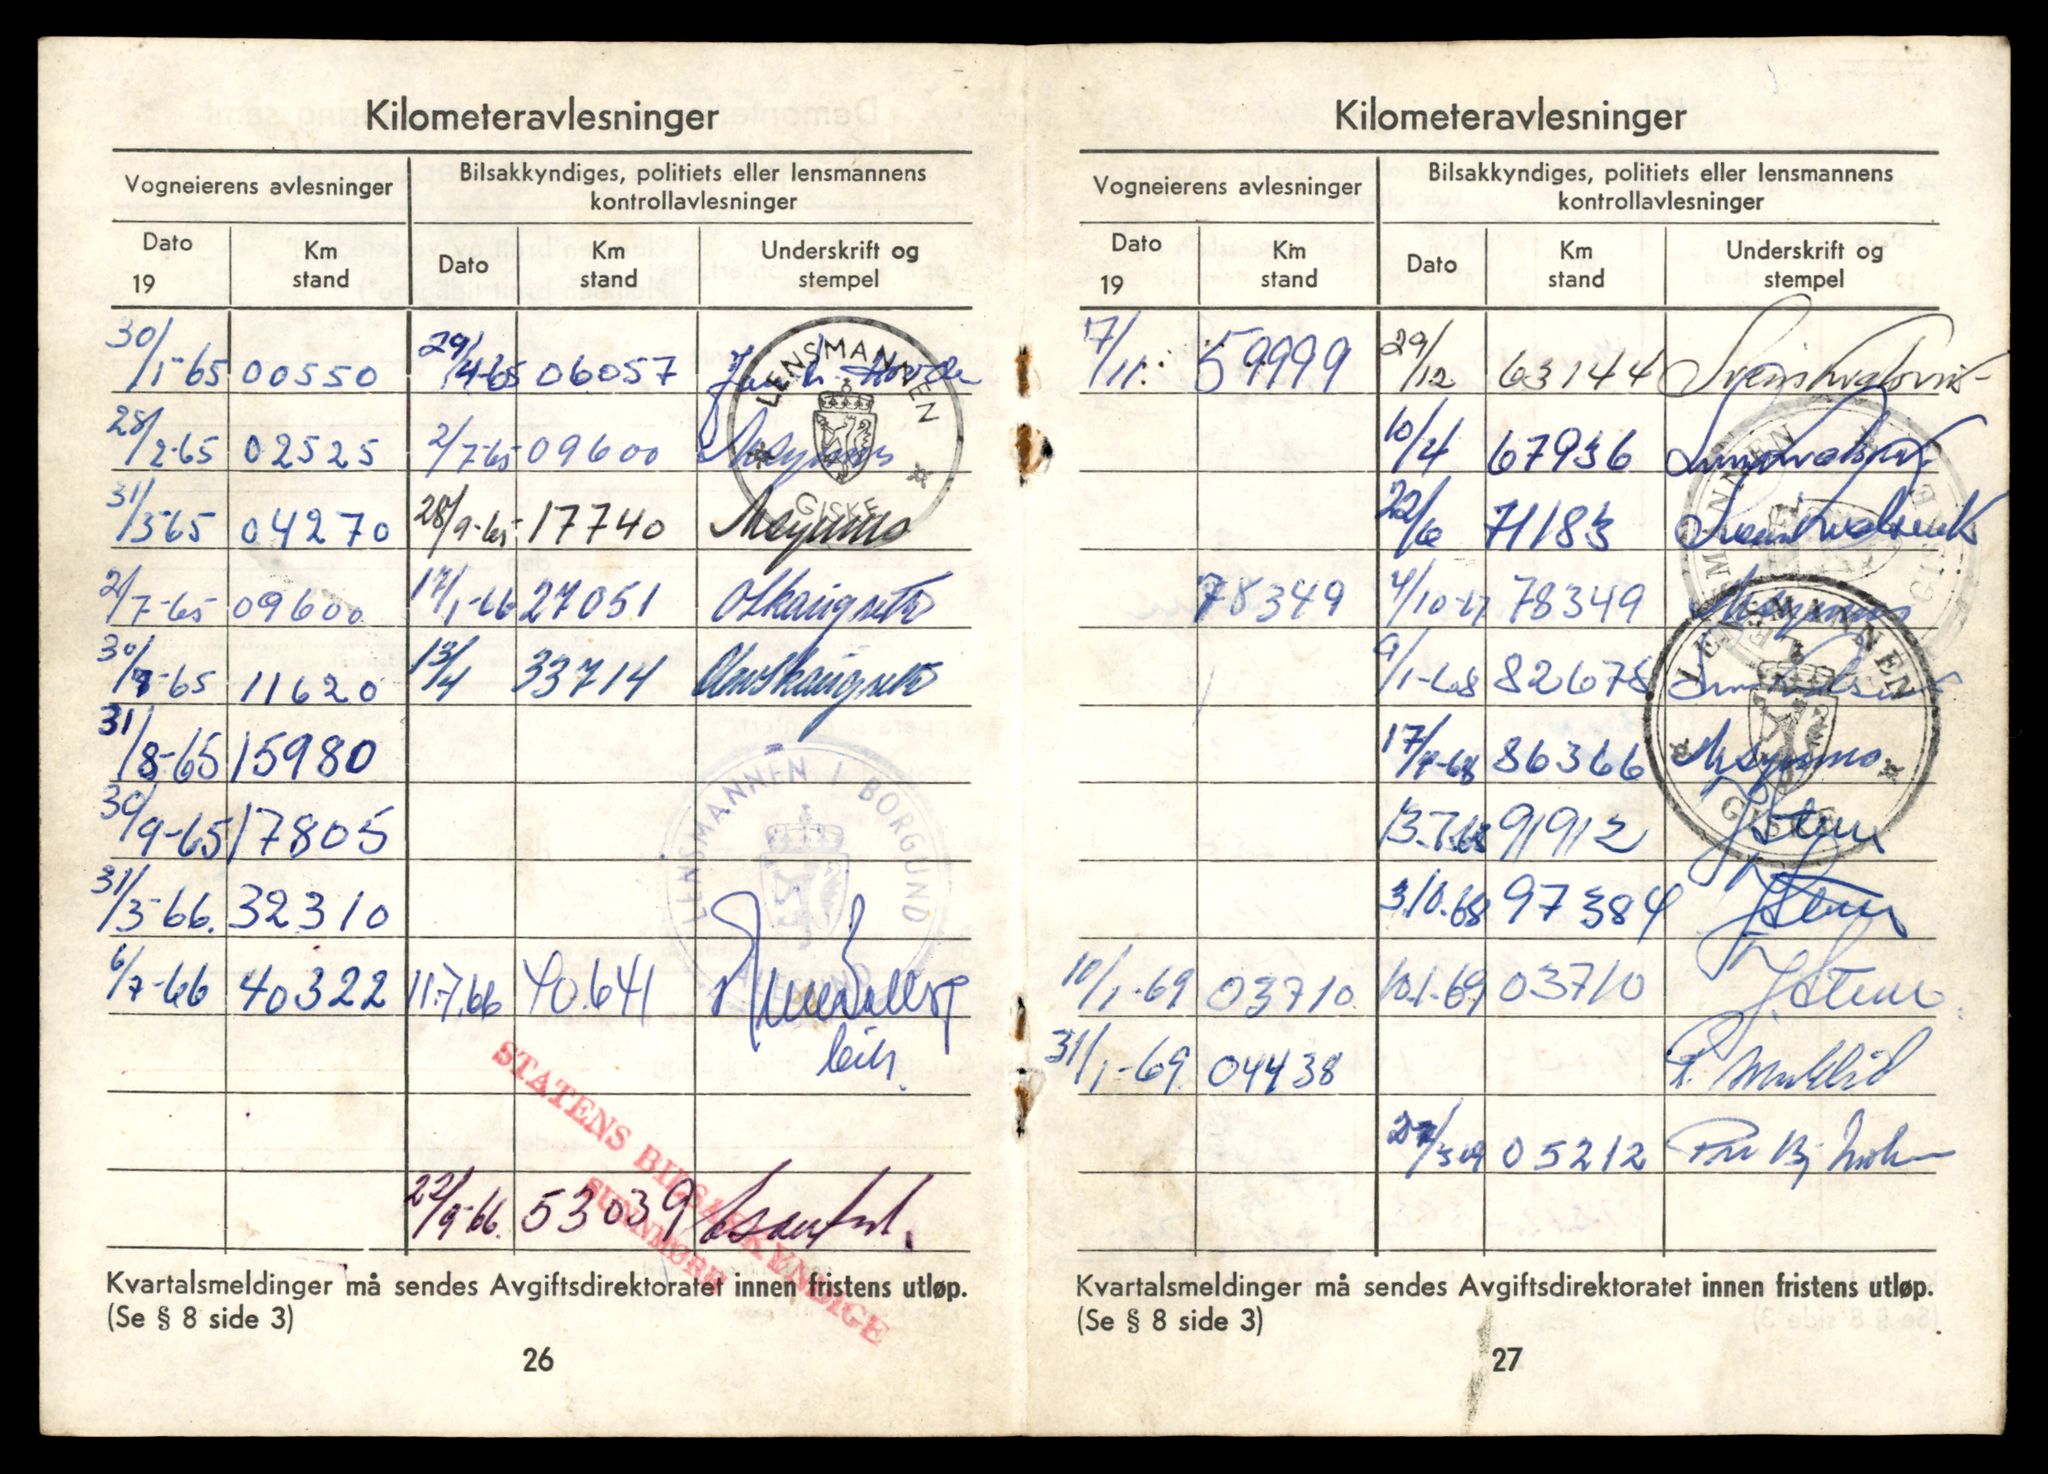 Kilometeravlesninger
Vogneierens avlesninger
Bilsakkyndiges, politiets eller lensmannens
kontrollavlesninger
Dato
19
Km
stand
Dato
Km
stand
Underskrift og
stempel
30/1-65 00550 29/4-65 06057
28/2-65 02525 2/7-65 09600
31/3-65 04270 28/9-65 17740
2/7-65 09600 17/1-66 27051
30/7-65 11620 13/4 33714
31/8-65 15980
30/9-65 17805
31/3-66. 32310
6/7-66 40322 11.7.66 40.641
22/9-66. 53039
LENSMANNEN
GISKE
LENSMANNEN I BORGUND
STATENS BILSAKKYNDIGE
SUNNMØRE
Kvartalsmeldinger må sendes Avgiftsdirektoratet innen fristens utløp.
(Se § 8 side 3)
26
Kilometeravlesninger
Vogneierens avlesninger
Bilsakkyndiges, politiets eller lensmannens
kontrollavlesninger
Dato
19
Km
stand
Dato
Km
stand
Underskrift og
stempel
7/11. 59999 29/12 63144
10/4 67936
22/6 71183
78349 4/10-67 78349
9/1-68 82678
17/4-68 86366
13.7.68 91912
3.10.68 97384
10/1-69 03710 10.1.69 03710 J. Stene
31/1-69 04438
05212
LENSMANNEN
GISKE
LENSMANNEN
GISKE
Kvartalsmeldinger må sendes Avgiftsdirektoratet innen fristens utløp.
(Se § 8 side 3)
27